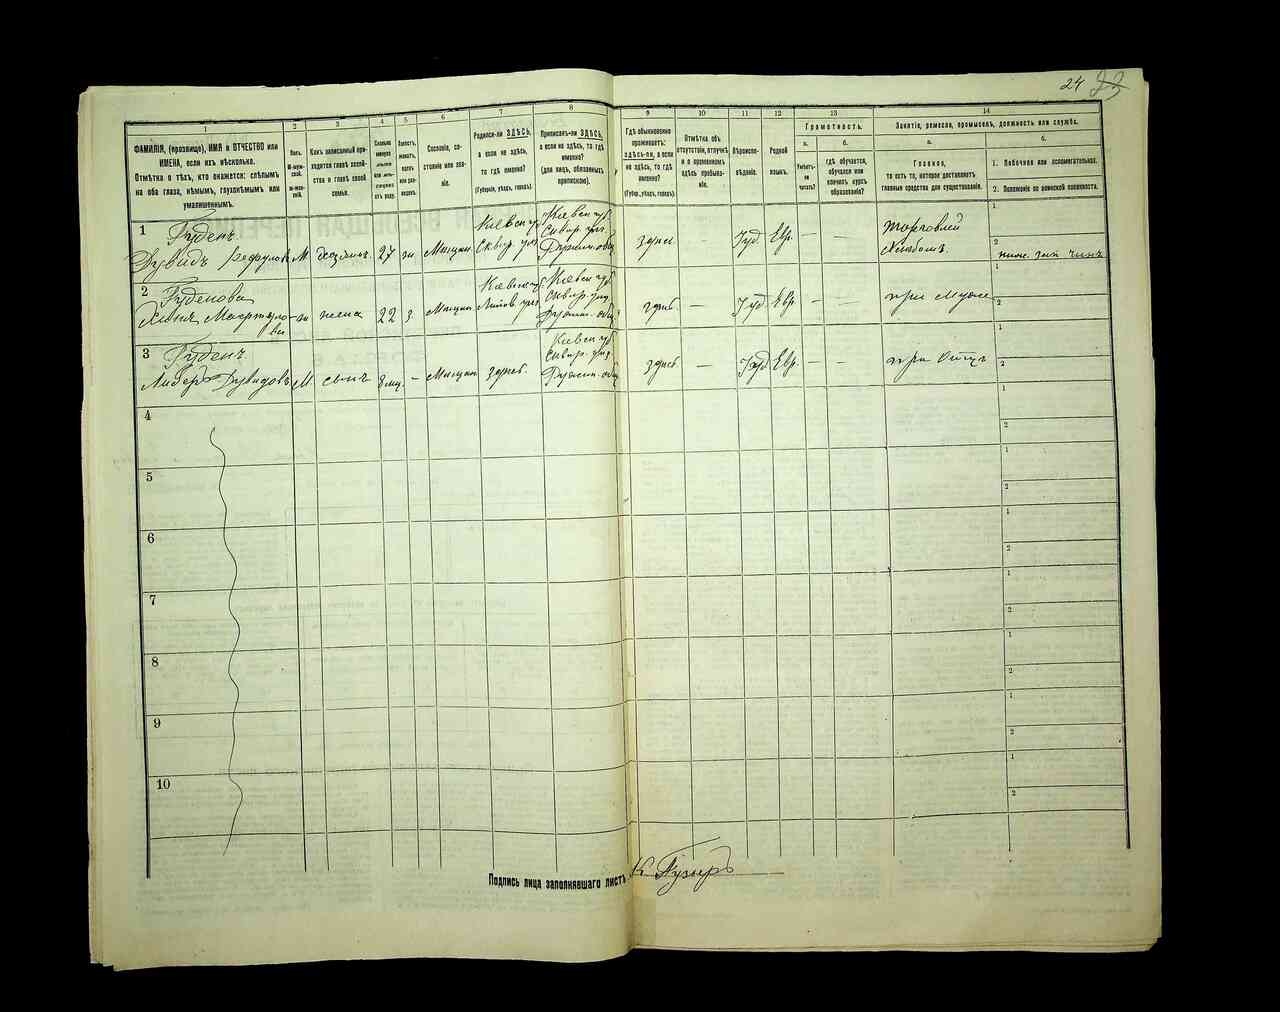 24 23
1 2 3 4 5 6 7 8 9 10 11 12 13 14
ФАМИЛІЯ, (прозвище), ИМЯ и ОТЧЕСТВО или
ИМЕНА, если ихъ нѣсколько.
Отмѣтка о тѣхъ, кто окажется: слѣпымъ
на оба глаза, нѣмымъ, глухонѣмымъ или
умалишеннымъ.
Полъ.
М-муж-
ской.
ж-жен-
скій.
Какъ записанный при-
ходится главѣ хозяй-
ства и главѣ своей
семьи.
Сколько
минуло
лѣтъ
или мѣ-
сяцевъ
отъ роду.
Холостъ,
женатъ,
вдовъ
или раз-
веденъ.
Сословіе, со-
стояніе или зва-
ніе.
Родился-ли ЗДѢСЬ,
а если не здѣсь,
то гдѣ именно?
(Губернія, уѣздъ, городъ).
Приписанъ-ли ЗДѢСЬ,
а если не здѣсь, то гдѣ
именно?
(для лицъ, обязанныхъ
припискою).
Гдѣ обыкновенно
проживаетъ:
здѣсь-ли, а если
не здѣсь, то гдѣ
именно?
(Губер., уѣздъ, городъ).
Отмѣтка объ
отсутствіи, отлучкѣ
и о временномъ
здѣсь пребыва-
ніи.
Вѣроиспо-
вѣданіе.
Родной
языкъ.
Грамотность.
а.
Умѣетъ-
ли
читать?
б.
гдѣ обучается,
обучался или
кончилъ курсъ
образованія?
Занятіе, ремесло, промыселъ, должность или служба.
а.
Главное,
то есть то, которое доставляетъ
главныя средства для существованія.
б.
1. Побочное или вспомогательное.
2. Положеніе по воинской повинности.
1 Гуденъ
Дувидъ М хозяинъ 27 ж Мѣщан.
Кіевск губ
Сквир. уѣз
Кіевск губ.
Сквир. уѣз.
здѣсь — Іуд. Евр. — —
торговлей
хлѣбомъ
1
2 ниж. зап чинъ
2 Гуденова
Хана ж жена 22 з. Мѣщан
Кіевск губ.
Кіевск губ
Сквир. уѣз
здѣсь — Іуд Евр — —
при мужѣ
1
2
3 Гуденъ
Дувидовъ М. сынъ 8 мц. — Мѣщан здѣсь.
Кіевск губ
Сквир. уѣз
здѣсь — Іуд Евр. — —
при отцѣ
1
2
4 1
2
5 1
2
6 1
2
7 1
2
8 1
2
9 1
2
10 1
2
Подпись лица заполнявшаго листъ К Пузыръ